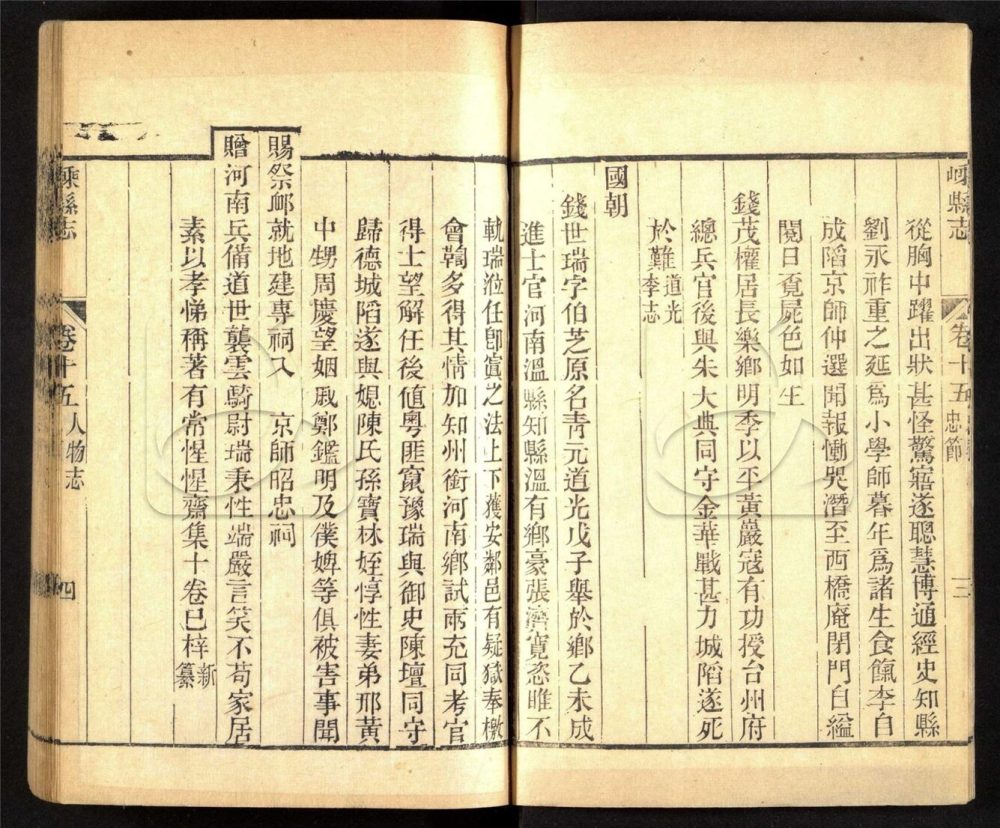 嵊縣志 卷十五 忠節 三
從胸中躍出狀甚怪驚寤遂聰慧博通經史知縣
劉永祚重之延爲小學師暮年爲諸生食餼李自
成陷京師仲選聞報慟哭潛至西橋庵閉門自縊
閱日覓屍色如生
錢茂權居長樂鄉明季以平黃巖寇有功授台州府
總兵官後與朱大典同守金華戰甚力城陷遂死
於難道光李志
國朝
錢世瑞字伯芝原名青元道光戊子舉於鄉乙未成
進士官河南溫縣知縣溫有鄉豪張濟寬恣睢不
軌瑞涖任卽寘之法上下獲安鄰邑有疑獄奉檄
會鞫多得其情加知州銜河南鄉試兩充同考官
得士望解任後値粵匪竄豫瑞與御史陳壇同守
歸德城陷遂與媳陳氏孫寶林姪惇性妻弟邢黃
中甥周慶望姻戚鄭鑑明及僕婢等俱被害事聞
賜祭卹就地建專祠入 京師昭忠祠
贈河南兵備道世襲雲騎尉瑞秉性端嚴言笑不苟家居
素以孝悌稱著有常惺惺齋集十卷已梓新纂
嵊縣志 卷十五 人物志 四